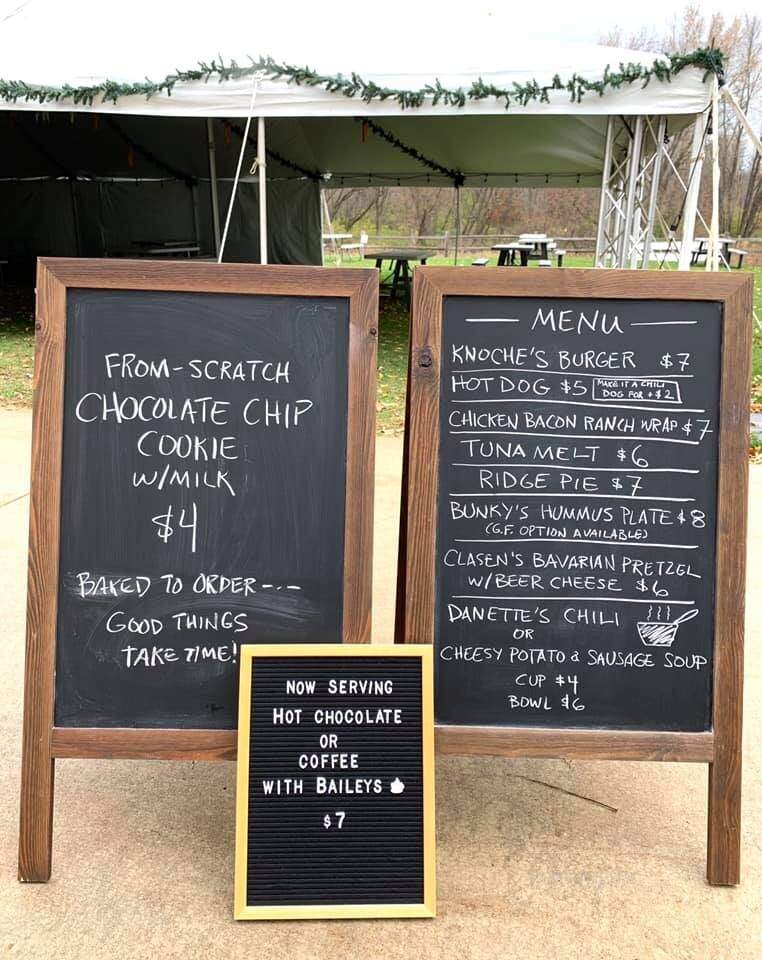 FROM-SCRATCH
CHOCOLATE CHIP
COOKIE
W/MILK
$4
BAKED TO ORDER ---
GOOD THINGS
TAKE TIME!
MENU
KNOCHE'S BURGER $7
HOT DOG $5 MAKE IT A CHILI
DOG FOR +$2
CHICKEN BACON RANCH WRAP $7
TUNA MELT $6
RIDGE PIE $7
BUNKY'S HUMMUS PLATE $8
(G.F. OPTION AVAILABLE)
CLASEN'S BAVARIAN PRETZEL
W/BEER CHEESE $6
DANETTE'S CHILI
OR
CHEESY POTATO & SAUSAGE SOUP
CUP $4
BOWL $6
NOW SERVING
HOT CHOCOLATE
OR
COFFEE
WITH BAILEYS
$7